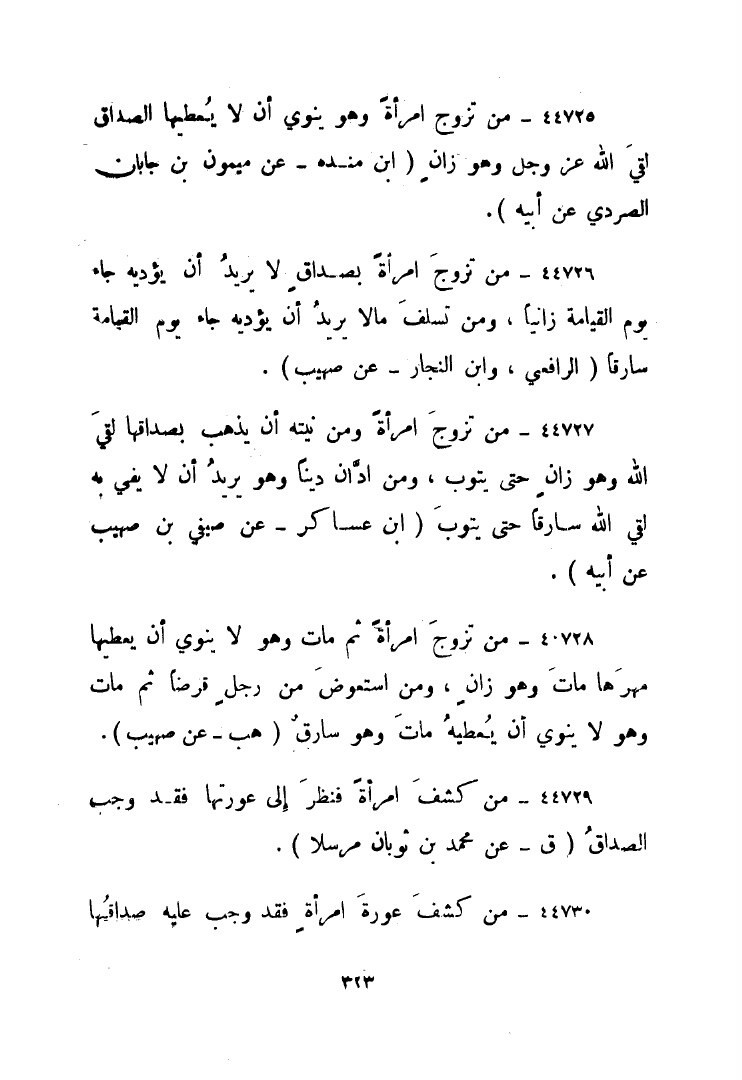 ٤٤٧٢٥ – من تزوج امرأةً وهو ينوي أن لا يُعطيها الصداق
لقيَ الله عز وجل وهو زانٍ ( ابن منده – عن ميمون بن جابان
الصردي عن أبيه ) .
٤٤٧٢٦ – من تزوجَ امرأةً بصداقٍ لا يريدُ أن يؤديه جاء
يوم القيامة زانياً ، ومن تسلفَ مالا يريدُ أن يؤديه جاء يوم القيامة
سارقاً ( الرافعي ، وابن النجار – عن صهيب) .
٤٤٧٢٧ – من تزوجَ امرأةً ومن نيته أن يذهب بصداقها لقيَ
الله وهو زانٍ حتى يتوب ، ومن ادَّان ديناً وهو يريدُ أن لا يفي به
لقي الله سارقاً حتى يتوبَ ( ابن عساكر – عن صيفي بن صهيب
عن أبيه ) .
٤٠٧٢٨ – من تزوجَ امرأةً ثم مات وهو لا ينوي أن يعطيها
مهرَها ماتَ وهو زانٍ ، ومن استعوضَ من رجلٍ قرضاً ثم مات
وهو لا ينوي أن يُعطيهُ ماتَ وهو سارقٌ ( هب – عن صهيب) .
٤٤٧٢٩ – من كشفَ امرأةً فنظرَ إلى عورتها فقد وجب
الصداقُ ( ق – عن محمد بن ثوبان مرسلا ) .
٤٤٧٣٠ – من كشفَ عورةَ امرأةٍ فقد وجب عليه صداقُها
٣٢٣